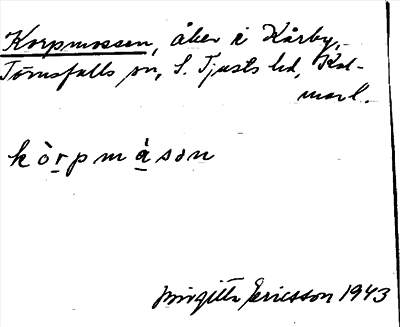 Korpmossen, åker i Kårby,
Törnsfalls sn, S. Tjusts hd, Kal-
mar l.
kòrpmåson
Birgitta Ericsson 1943